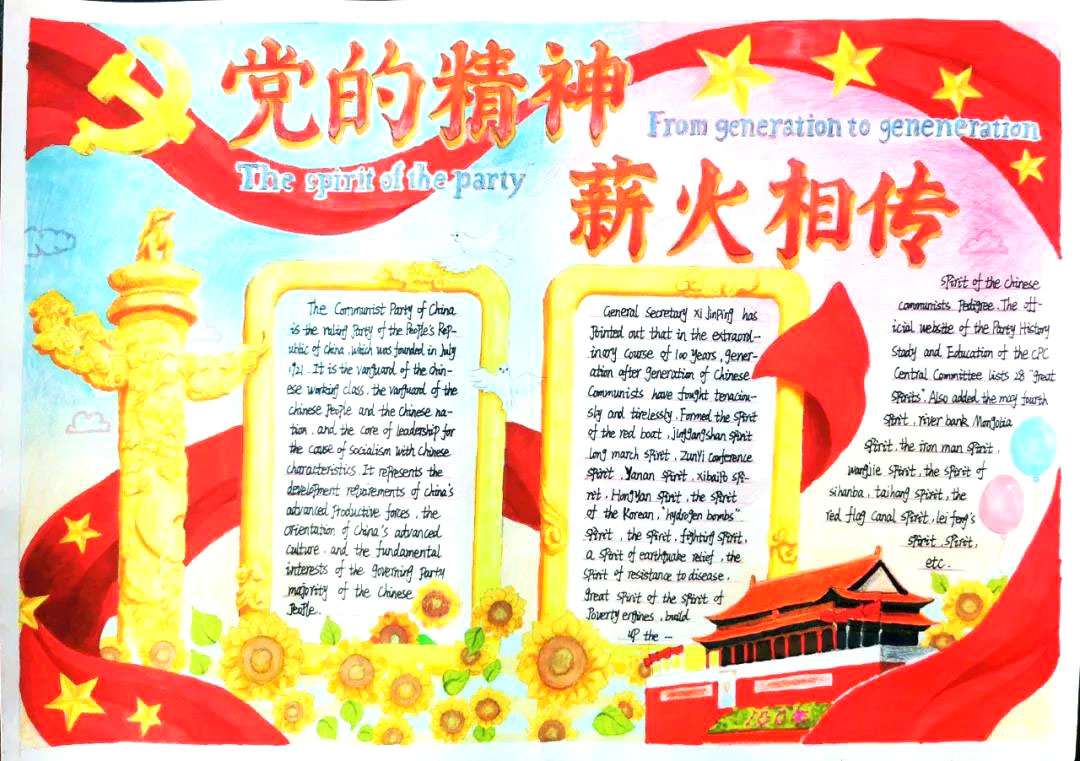 党的精神
The spirit of the party
From generation to geneneration
薪火相传
The Communist Party of China
is the ruling Party of the People's Rep-
ublic of China, which was founded in July
1921. It is the vanguard of the Chin-
ese working class, the vanguard of the
Chinese People and the Chinese na-
tion, and the core of leadership for
the cause of socialism with Chinese
characteristics. It represents the
development requirements of China's
advanced Productive forces, the
orientation of China's advanced
culture, and the fundamental
interests of the governing Party
majority of the Chinese
People.
General Secretary Xi Jinping has
Pointed out that in the extraord-
inary course of 100 years, gener-
ation after generation of Chinese
Communists have fought tenaciou-
sly and tirelessly. Formed the spirit
of the red boat, jinggangshan spirit
long march spirit, Zunyi conference
spirit, Yanan spirit, xibaipo spi-
rit, Hongyan spirit, the spirit
of the Korean, "hydrogen bombs"
spirit, the spirit, fighting spirit,
a spirit of earthquake relief, the
spirit of resistance to disease,
great spirit of the spirit of
Poverty engines, build
up the —
spirit of the Chinese
communists Pedigree. The off-
icial website of the Party History
Study and Education of the CPC
Central Committee lists 28 "great
spirits". Also added the may fourth
spirit, river bank Mongolia
spirit, the iron man spirit,
wangjie spirit, the spirit of
sihanba, taihang spirit, the
red flag canal spirit, lei feng's
spirit, spirit,
etc.